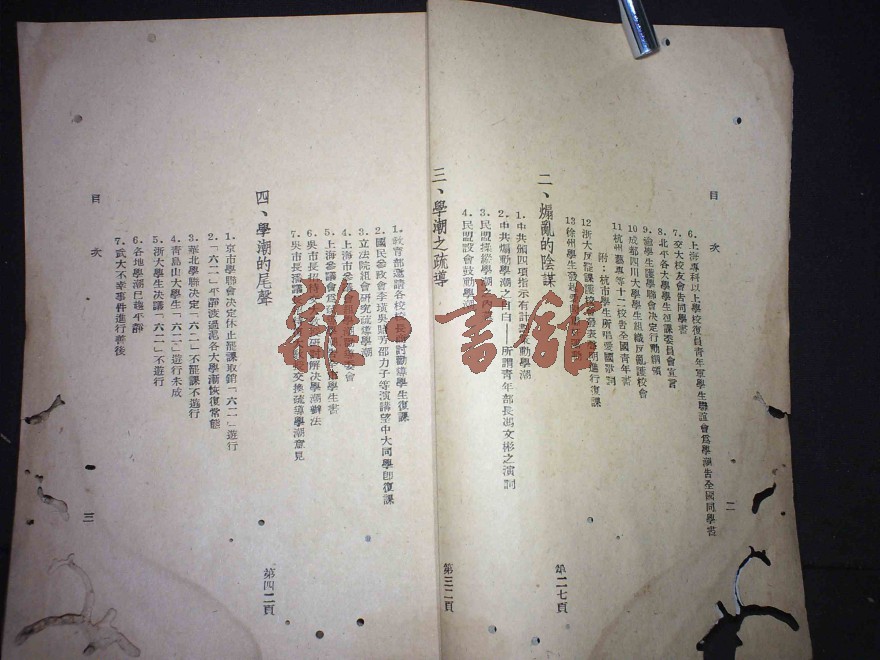 目次
二
6. 上海專科以上學校復員青年軍學生聯誼會爲學潮告全國同學書
7. 交大校友會告同學書
8. 北平各大學學生復課委員會宣言
9. 渝學生護學聯會決定行動綱領
10 成都四川大學學生組織反亂護校會
11 杭州藝專等十二校告全國青年書
附：杭市學生所唱愛國歌詞
12 浙大反罷課護校會發表聲明進行復課
13 徐州學生發起
二、煽亂的陰謀
第二七頁
1. 中共頒四項指示有計劃策動學潮
2. 中共煽動學潮之自白——所謂青年部長馮文彬之演詞
3. 民盟操縱學潮之內幕
4. 民盟設會鼓動學潮
三、學潮之疏導
第三二頁
1. 教育部邀請各校校長商討勸導學生復課
2. 國民參政會李璜吳貽芳邵力子等演講望中大同學即復課
3. 立法院組會研究疏導學潮
4. 上海市參議會
5. 上海參議會爲
學生書
6. 吳市長招待
研討解決學潮辦法
7. 吳市長邀請
交換疏導學潮意見
四、學潮的尾聲
第四二頁
1. 京市學聯會決定休止罷課取銷「六二」遊行
2. 「六二」平靜渡過泥各大學漸恢復常態
3. 華北學聯決定「六二」不罷課不遊行
4. 青島山大學生「六二」遊行未成
5. 浙大學生決議「六二」不遊行
6. 各地學潮已趨平靜
7. 武大不幸事件進行善後
目次
三
雜·書館